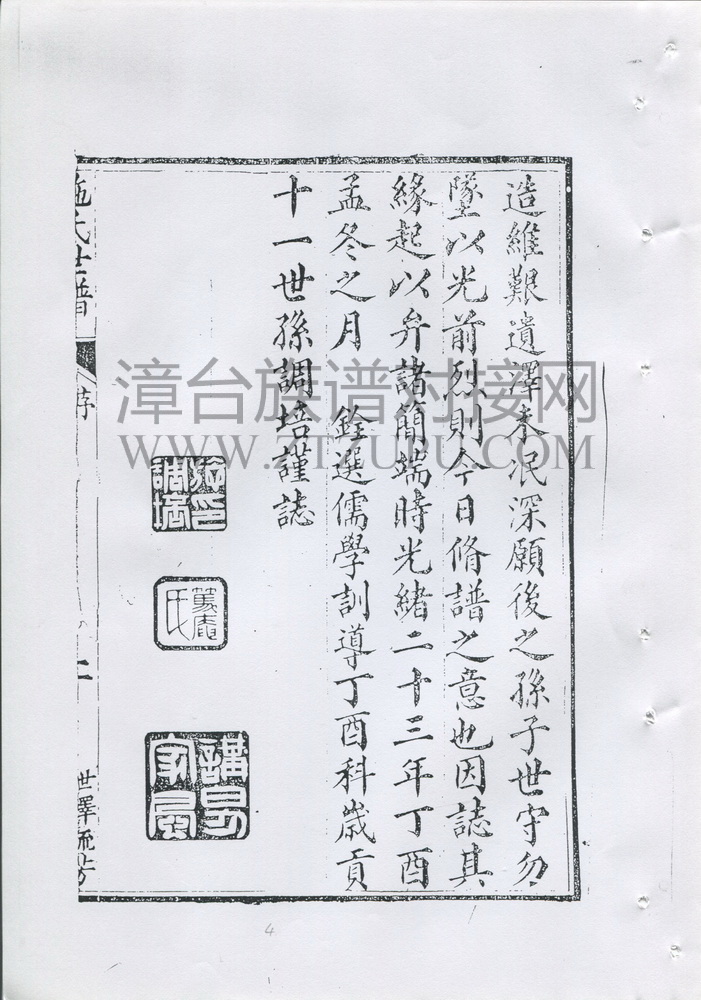 造維艱遺澤未泯深願後之孫子世守勿
墜以光前烈則今日脩譜之意也因誌其
緣起以弁諸簡端時光緒二十三年丁酉
孟冬之月 銓選儒學訓導丁酉科歲貢
十一世孫調培謹誌
施印調培
篤庵氏
講易家風
施氏世譜
序
二
世澤流芳
漳台族谱对接网
WWW.ZTZUPU.COM
4